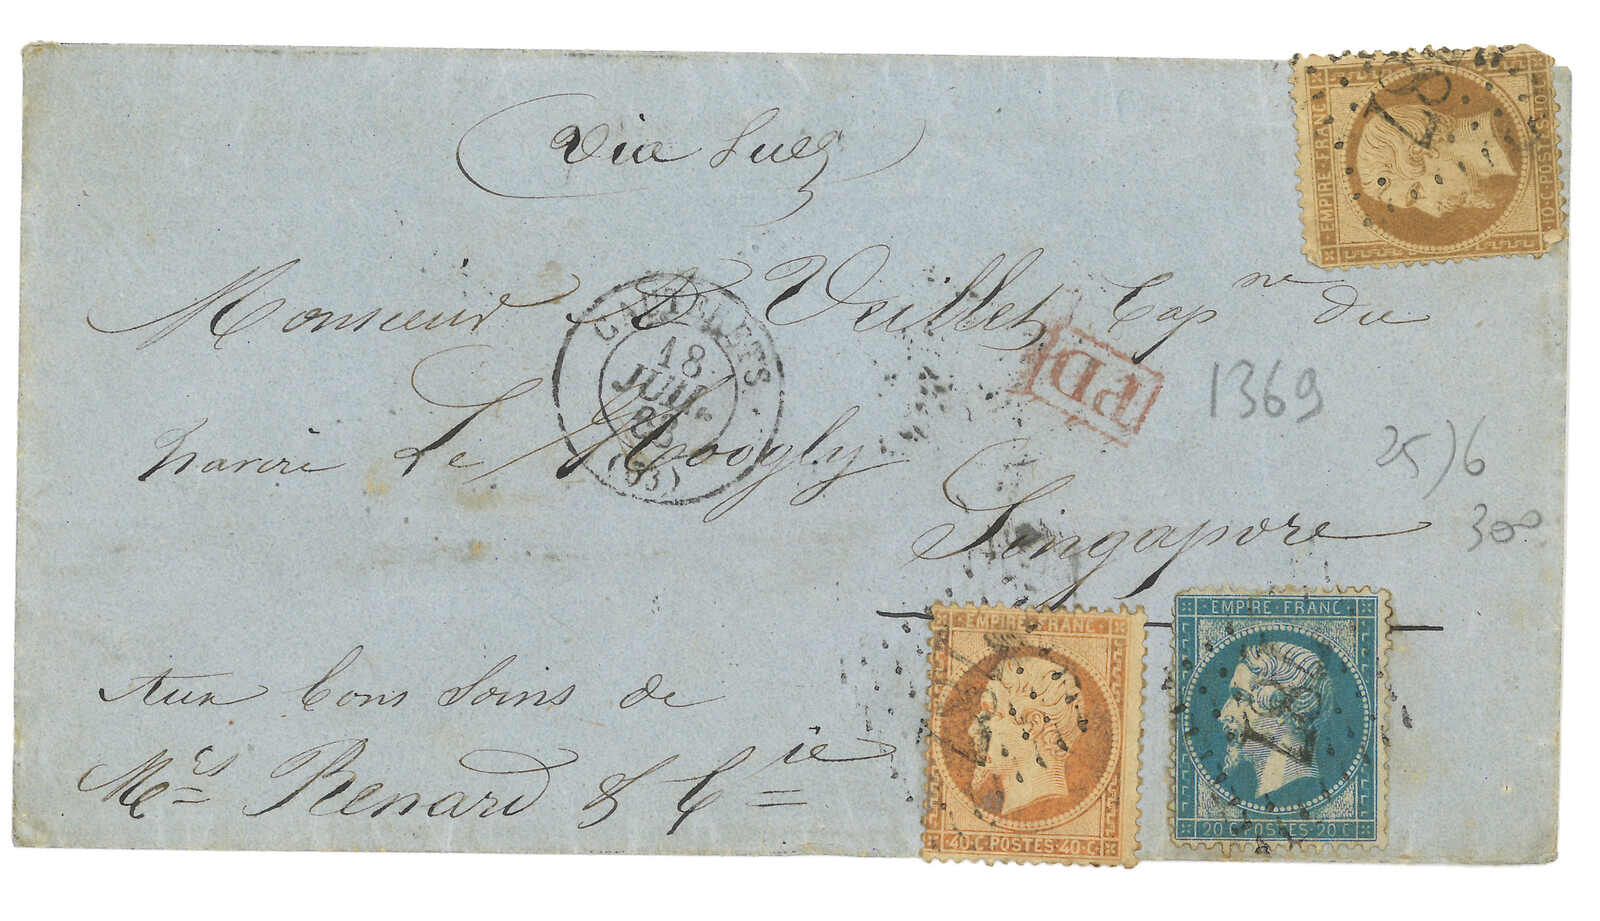 Via Suez
Monsieur D Veillet Cap ne du
navire Le Hoogly
Singapore
Aux bons soins de
Mes Renard & Cie
PD
1369
25)6
300
18
JUIL.
(33)
EMPIRE·FRANC
10·C·POSTES·10·C
EMPIRE·FRANC
40·C·POSTES·40·C
EMPIRE·FRANC
20·C·POSTES·20·C